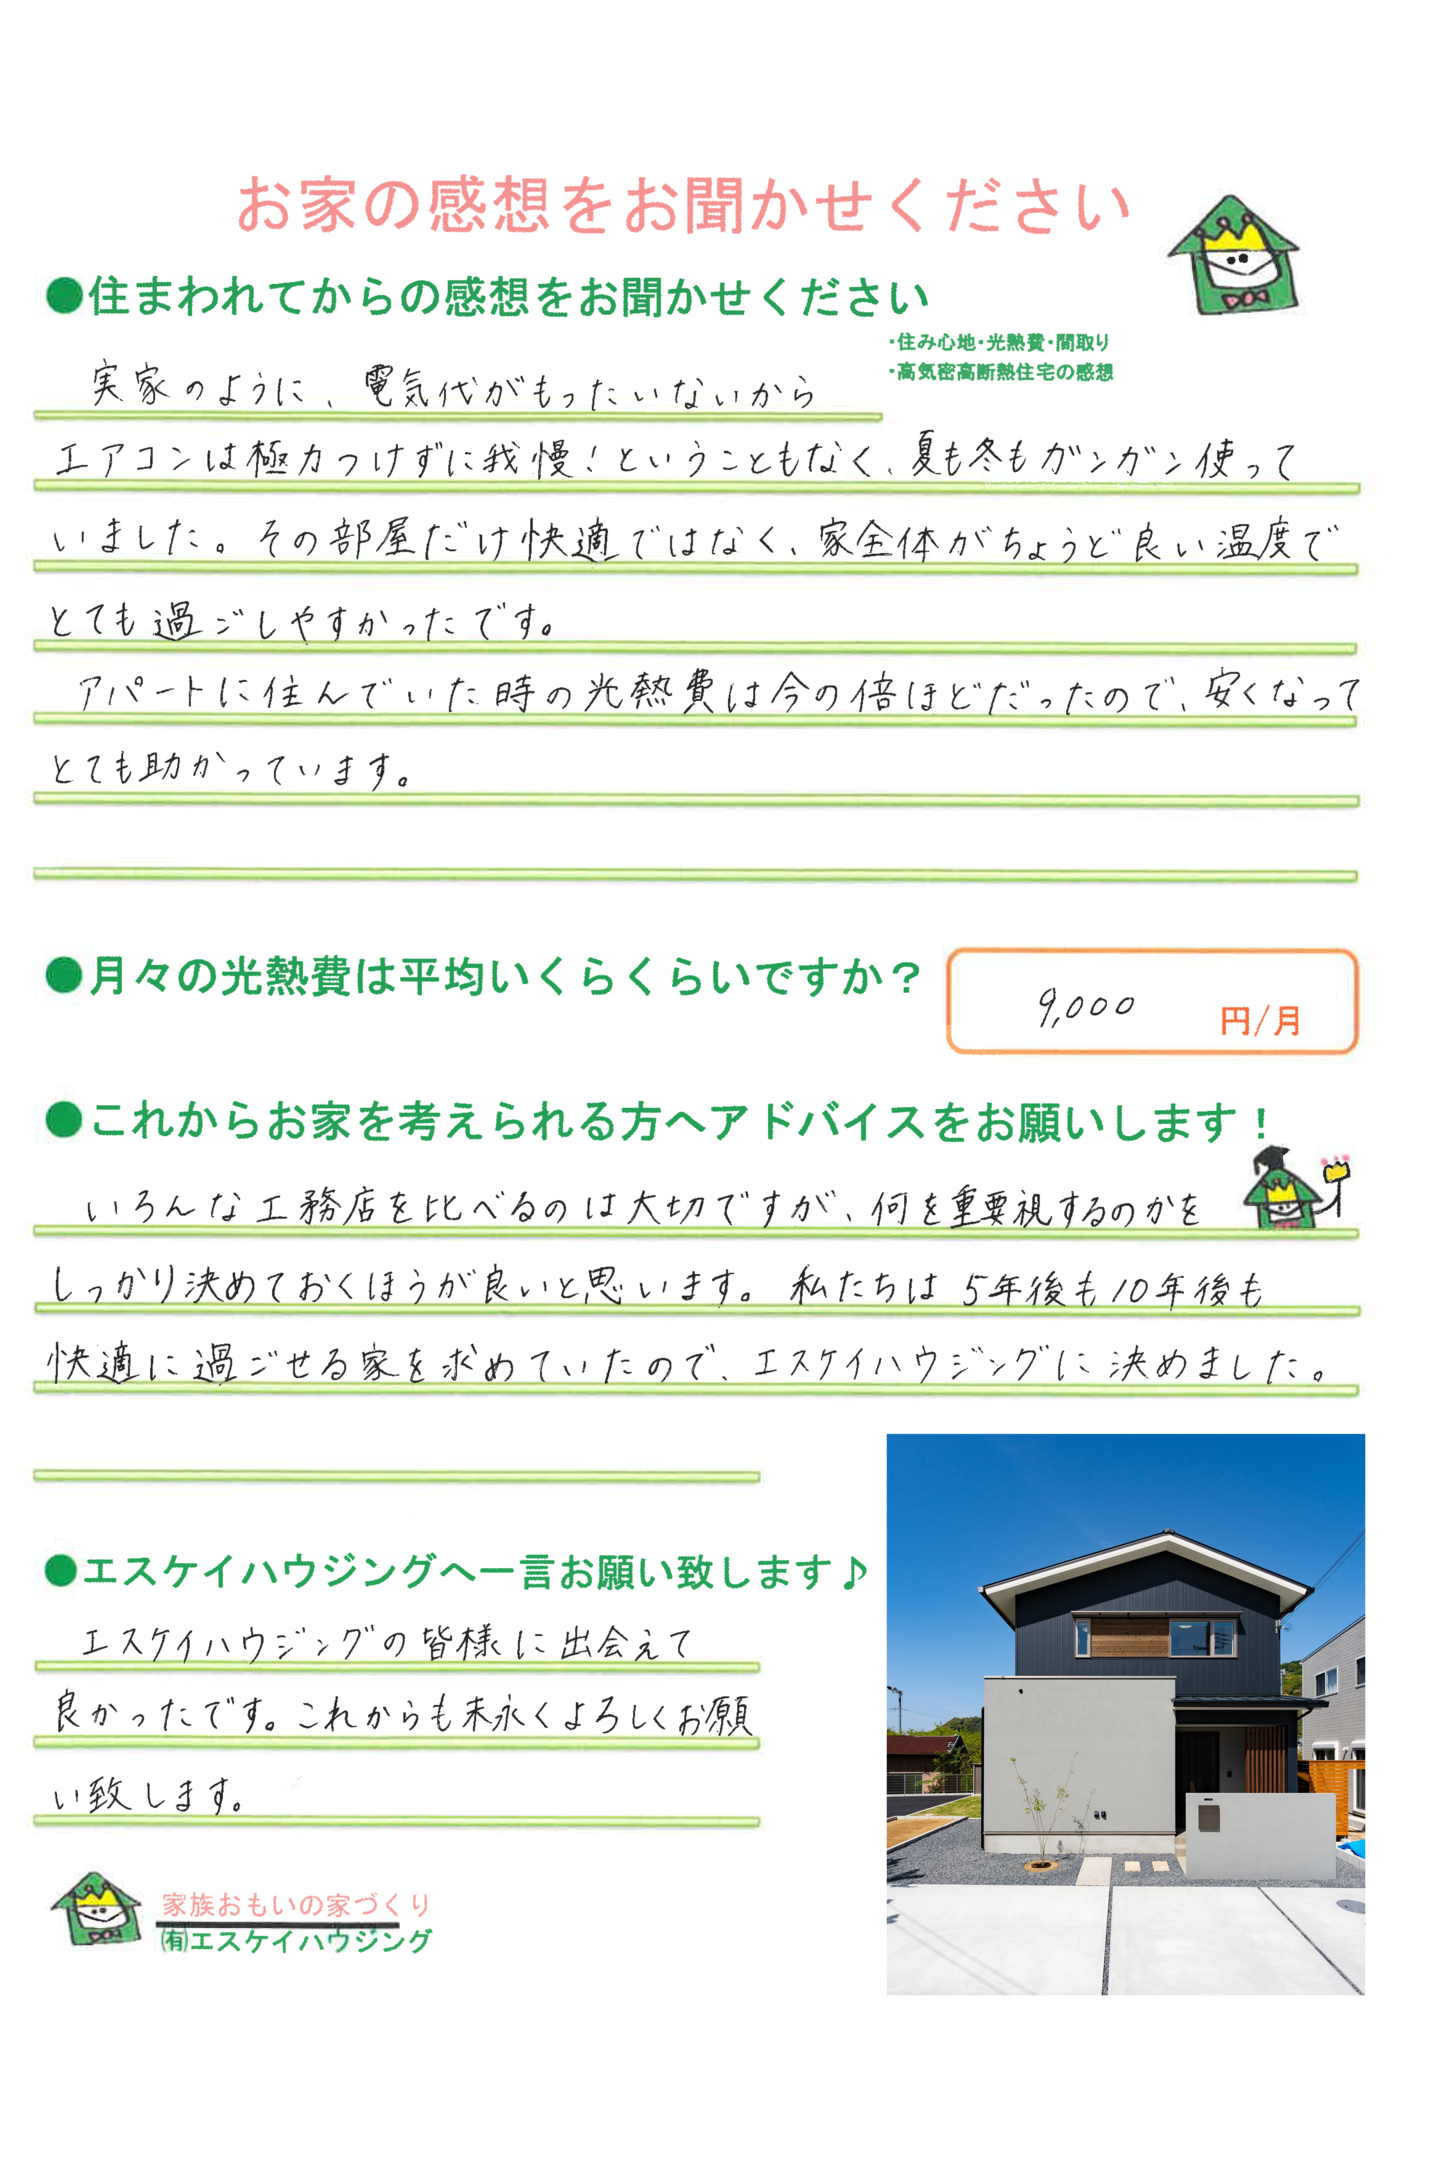 お家の感想をお聞かせください
●住まわれてからの感想をお聞かせください
・住み心地・光熱費・間取り
・高気密高断熱住宅の感想
実家のように、電気代がもったいないから
エアコンは極力つけずに我慢!ということもなく、夏も冬もガンガン使って
いました。その部屋だけ快適ではなく、家全体がちょうど良い温度で
とても過ごしやすかったです。
アパートに住んでいた時の光熱費は今の倍ほどだったので、安くなって
とても助かっています。
●月々の光熱費は平均いくらくらいですか?
9,000 円/月
●これからお家を考えられる方へアドバイスをお願いします!
いろんな工務店を比べるのは大切ですが、何を重要視するのかを
しっかり決めておくほうが良いと思います。私たちは5年後も10年後も
快適に過ごせる家を求めていたので、エスケイハウジングに決めました。
●エスケイハウジングへ一言お願い致します♪
エスケイハウジングの皆様に出会えて
良かったです。これからも末永くよろしくお願
い致します。
家族おもいの家づくり
㈲エスケイハウジング